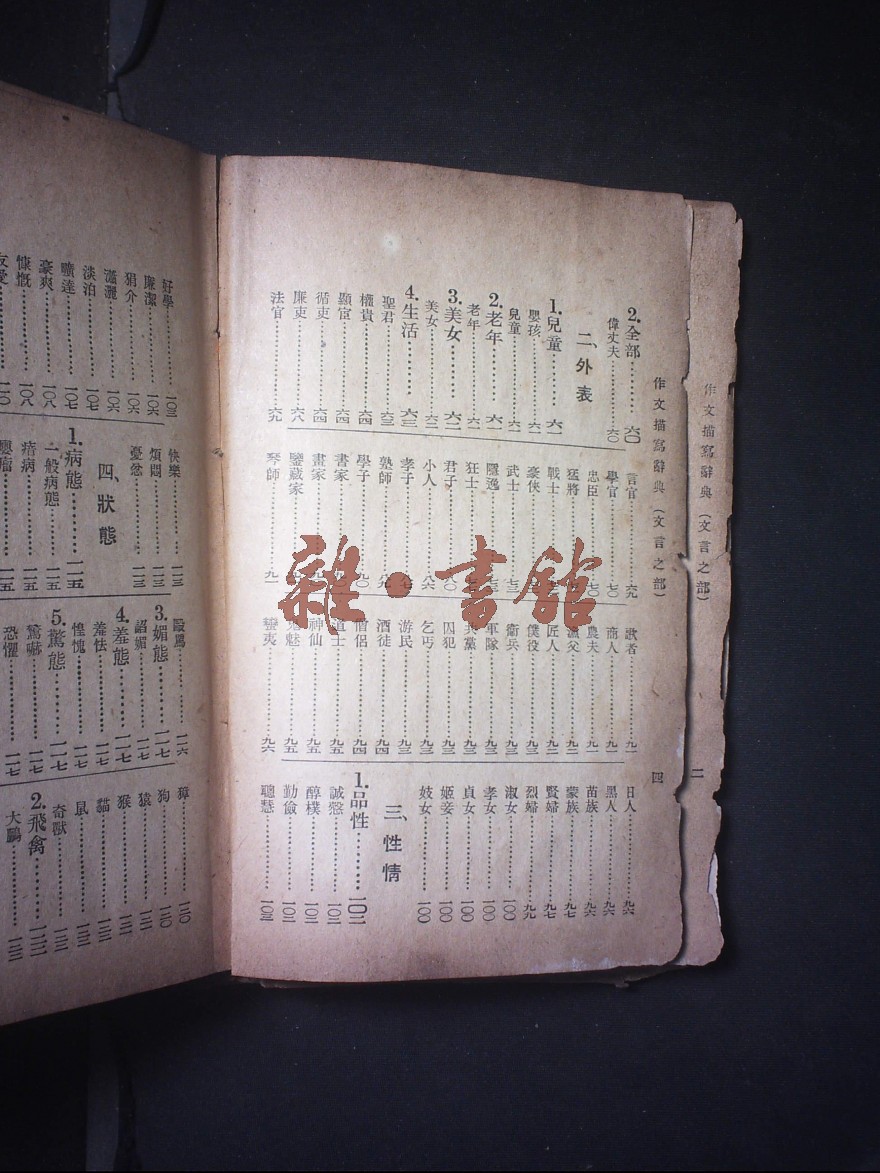 作文描寫辭典（文言之部）
二
作文描寫辭典（文言之部）
四
2.全部………六〇
偉丈夫………六〇
二、外表
1.兒童………六一
嬰孩………六一
兒童………六一
2.老年………六一
老年………六一
3.美女………六二
美女………六二
4.生活………六三
聖君………六三
權貴………六四
顯宦………六四
循吏………六四
廉吏………六八
法官………六九
言官………六九
學官………七〇
忠臣………七〇
猛將
戰士
豪俠
武士
隱逸
狂士
君子………八〇
小人………八六
孝子
塾師
學子………九〇
書家
畫家
鑒藏家
琴師………九一
歌者………九一
商人………九一
農夫………九二
漁父
匠人………九二
僕役………九三
衞兵………九三
軍隊………九三
共黨………九三
囚犯………九三
乞丐………九三
游民………九三
酒徒………九四
僧侶………九四
道士………九五
神仙………九五
魅………九五
蠻夷………九六
日人………九六
黑人………九六
苗族………九六
蒙族………九七
賢婦………九七
烈婦………九九
淑女………一〇〇
孝女………一〇〇
貞女………一〇〇
姬妾………一〇〇
妓女………一〇〇
三、性情
1.品性………一〇二
誠慤………一〇二
醇樸………一〇二
勤儉………一〇二
聰慧………一〇三
好學………一〇三
廉潔………一〇六
狷介………一〇六
瀟灑………一〇六
淡泊………一〇七
曠達………一〇七
豪爽………一〇八
慷慨………一〇八
友愛………一一〇
快樂………一一三
煩悶………一一三
憂忿………一一三
四、狀態
1.病態………一一五
一般病態………一一五
痞病………一一五
癭瘤………一一五
毆罵………一一六
3.媚態………一一七
諂媚………一一七
4.羞態………一一七
羞怯………一一七
惶愧………一一七
5.驚態………一一七
驚嚇………一一七
恐懼………一一七
獐………一二〇
狗………一二〇
猿………一二一
猴………一二一
貓………一二一
鼠………一二一
奇獸………一二一
2.飛禽………一二二
大鵬………一二二
雜·書館